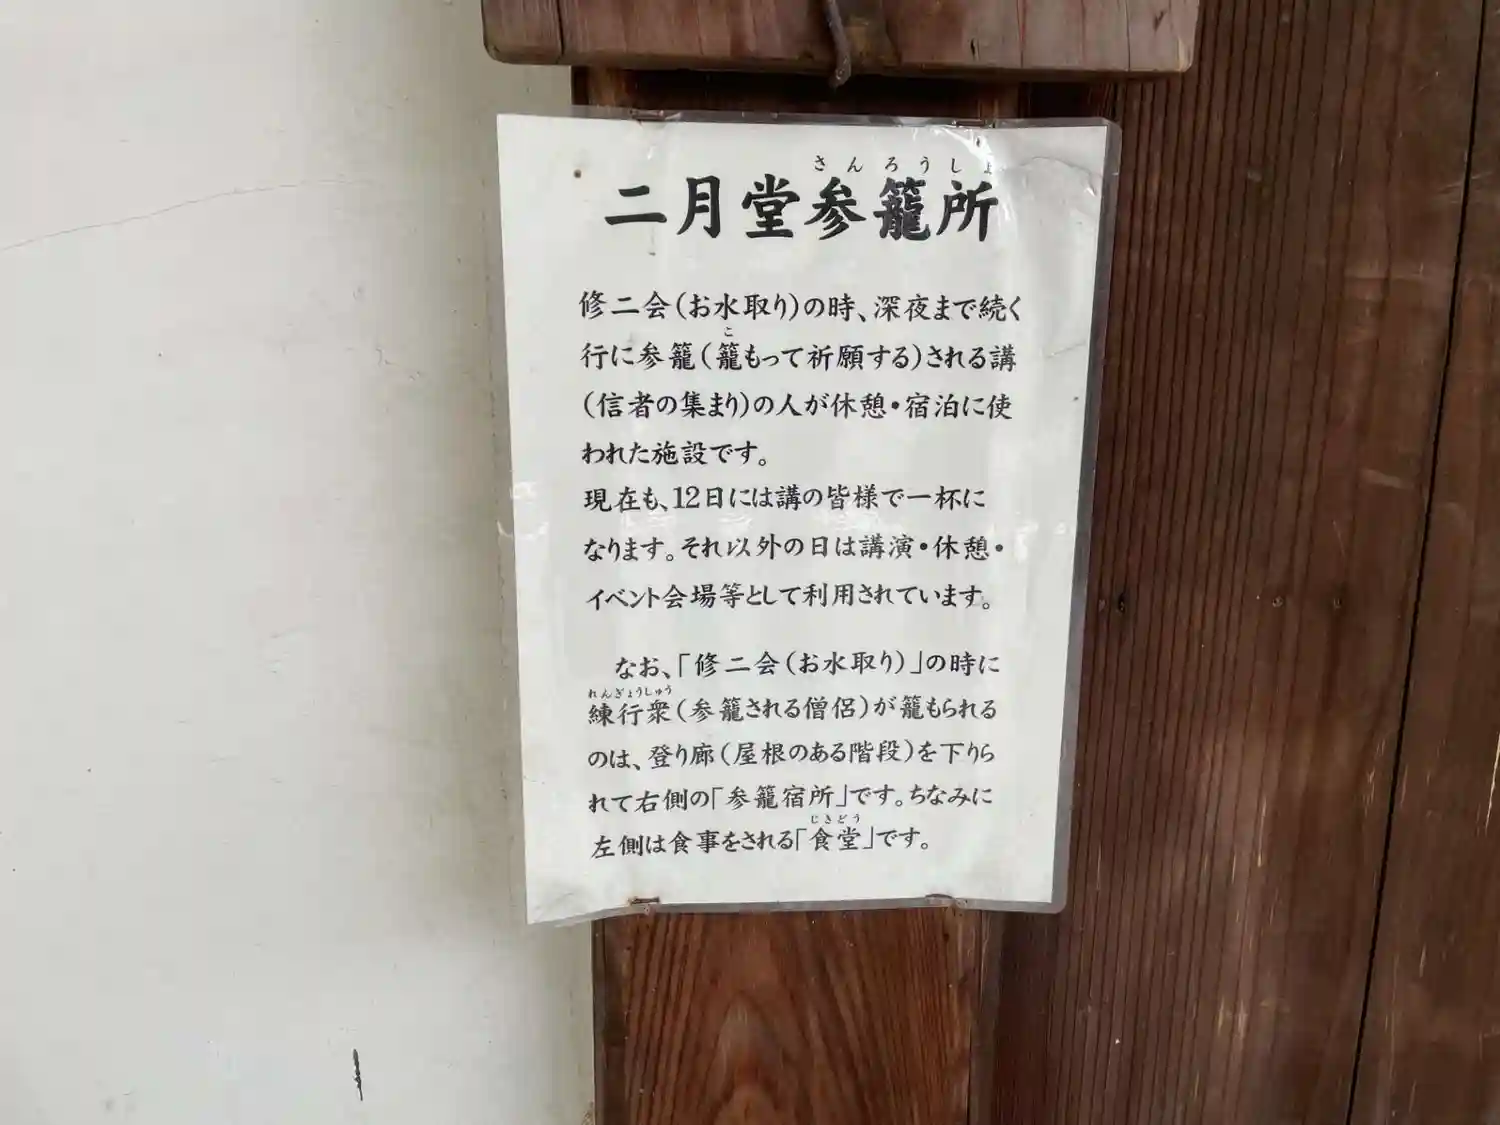 さんろうしょ
二月堂参籠所
修二会(お水取り)の時、深夜まで続く
こ
行に参籠(籠もって祈願する)される講
(信者の集まり)の人が休憩・宿泊に使
われた施設です。
現在も、12日には講の皆様で一杯に
なります。それ以外の日は講演・休憩・
イベント会場等として利用されています。
なお、「修二会(お水取り)」の時に
れんぎょうしゅう
練行衆(参籠される僧侶)が籠もられる
のは、登り廊(屋根のある階段)を下りら
れて右側の「参籠宿所」です。ちなみに
じきどう
左側は食事をされる「食堂」です。